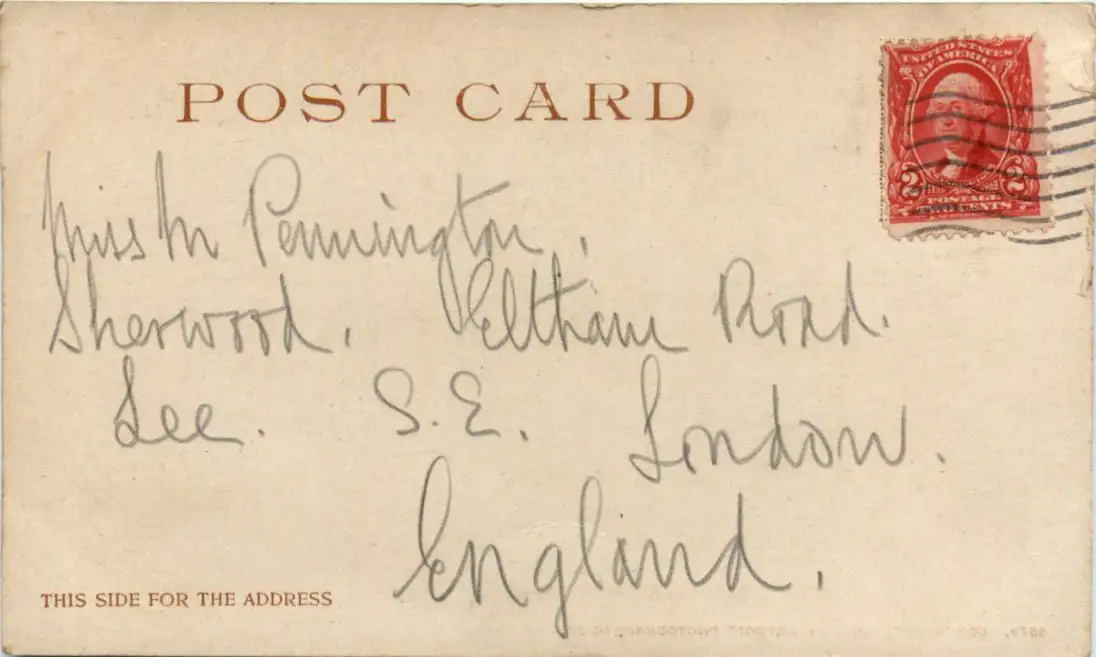 POST CARD
UNITED STATES
OF AMERICA
2 2
POSTAGE
TWO CENTS
Miss M Pennington,
Sherwood. Eltham Road.
Lee. S.E. London.
England.
THIS SIDE FOR THE ADDRESS